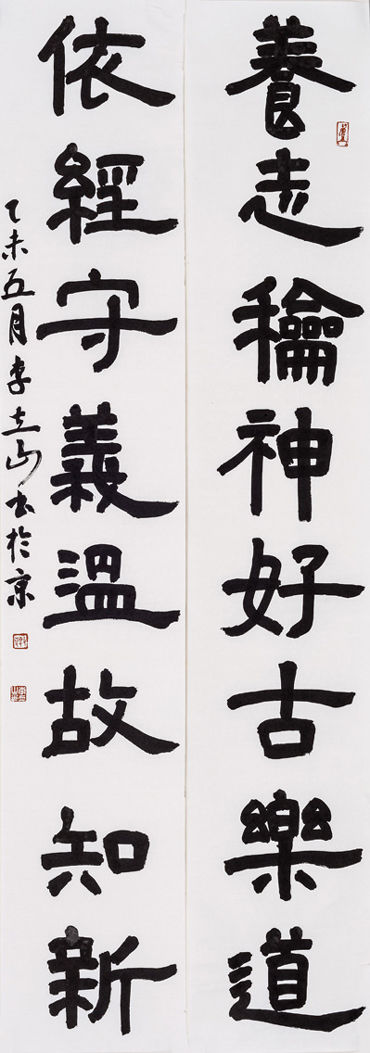 養志龢神好古樂道
依經守義溫故知新
乙未五月李立山書於京